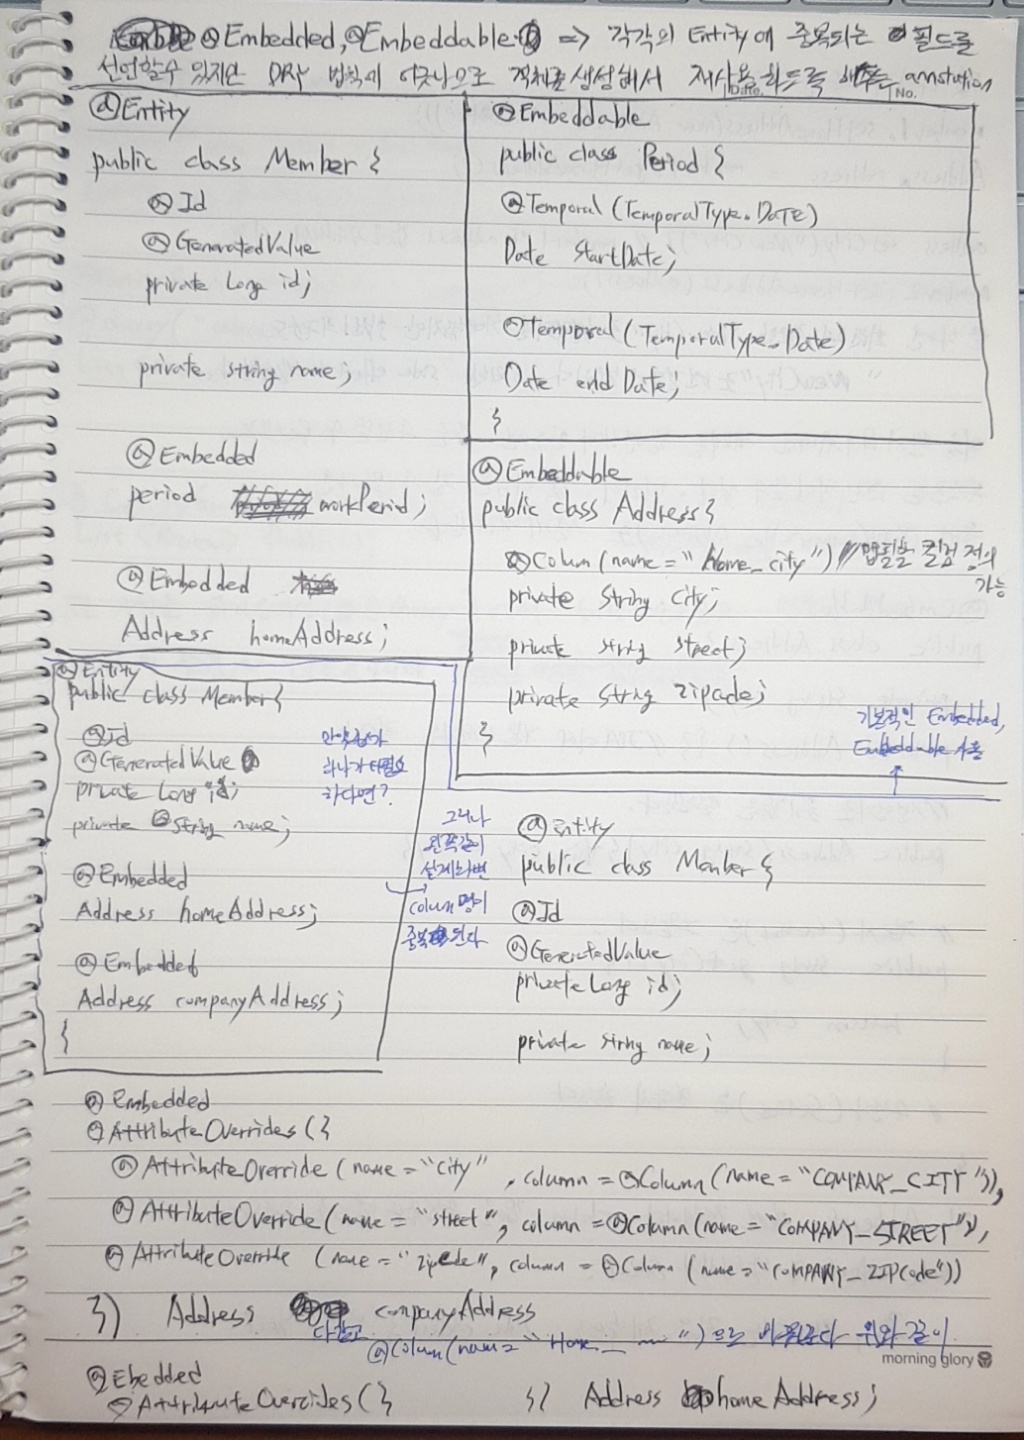 @Embedded, @Embeddable => 각각의 Entity에 중복되는 필드를
선언할수 있지만 DRY 법칙에 어긋남으로 객체를 생성해서 재사용 하도록 해주는 annotation
Date. No.
@Entity
public class Member {
@Id
@GeneratedValue
private Long id;
private string name;
@Embedded
period workPeriod;
@Embedded
Address homeAddress;
@Embeddable
public class Period {
@Temporal (TemporalType.DATE)
Date StartDate;
@Temporal (TemporalType.Date)
Date end Date;
}
@Embeddable
public class Address {
@Colum (name = "Home_city") // 맵핑할 컬럼 정의
가능
private String city;
private string street;
private String zipcode;
}
기본적인 Embedded,
Embeddable 사용
@Entity
public class Member {
@Id
@GeneratedValue
private Long id;
private String name;
@Embedded
Address homeAddress;
@Embedded
Address companyAddress;
{
만약 주소가
하나가 더 필요
하다면?
그러나
왼쪽같이
설계하면
colum명이
중복 된다
@Entity
public class Member {
@Id
@GeneratedValue
private Long id;
private string name;
@Embedded
@AttributeOverrides ({
@AttributeOverride (name = "city", column = @Column (name = "COMPANY_CITY")),
@AttributeOverride (name = "street", column = @Column (name = "COMPANY_STREET")),
@AttributeOverride (name = "zipcode", column = @Column (name = "COMPANY_ZIPCode"))
}) Address companyAddress
@Colum (name = "Home_ ") 으로 바꿔준다 위와 같이
morning glory
@Ebedded
@AttributeOvercides ({ }) Address homeAddress;